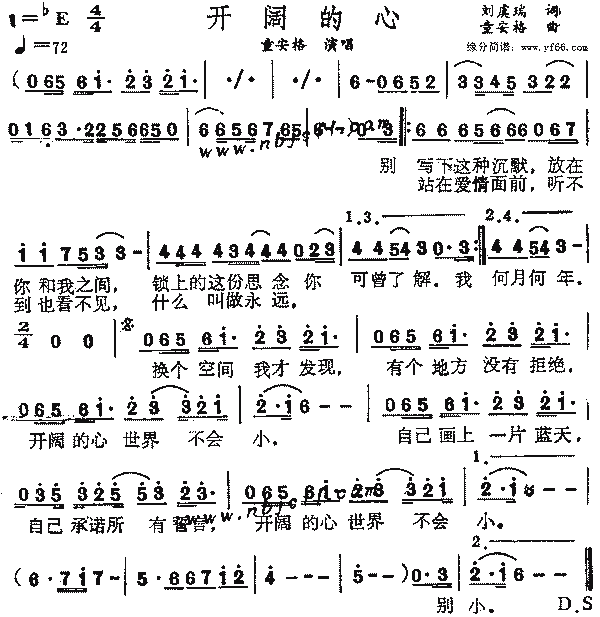 1=♭E 4/4 开阔的心 刘虞瑞 词
童安格 曲
♩=72 童安格 演唱 缘分简谱: www.yf66.com
(065 61· 23 21· | ·/· | ·/· | 6-0652 | 3345 322 |
0163·2256650 | 6656765 | 0·3 ‖: 6 6 656660 67 |
www.nbfc
别 写下这种沉默, 放在
站在爱情面前, 听不
1.3. 2.4.
1 1 7533- | 444 4344 4023 | 44543 0·3 :‖ 44543- |
你 和我之间, 锁上的这份思 念 你 可曾了 解。我 何月何 年。
到也看不见, 什么 叫做永 远,
2/4 0 0 | 065 61· 23 21· | 065 61· 23 21· |
换个 空间 我才 发现, 有个 地方 没有 拒绝,
065 61· 23 321 | 2·1 6-- | 065 61· 23 21· |
开阔的心 世界 不会 小。 自己 画上 一片 蓝天,
1.
035 325 53 23· | 065 61 23 321 | 2·1 6 |
自己 承诺所 有誓言, 开阔的心 世界 不会 小。
www.nbfc
2.
(6·717- | 5·66712 | 4--- | 5--)0·3 | 2·1 6-- ‖
别 小。 D.S